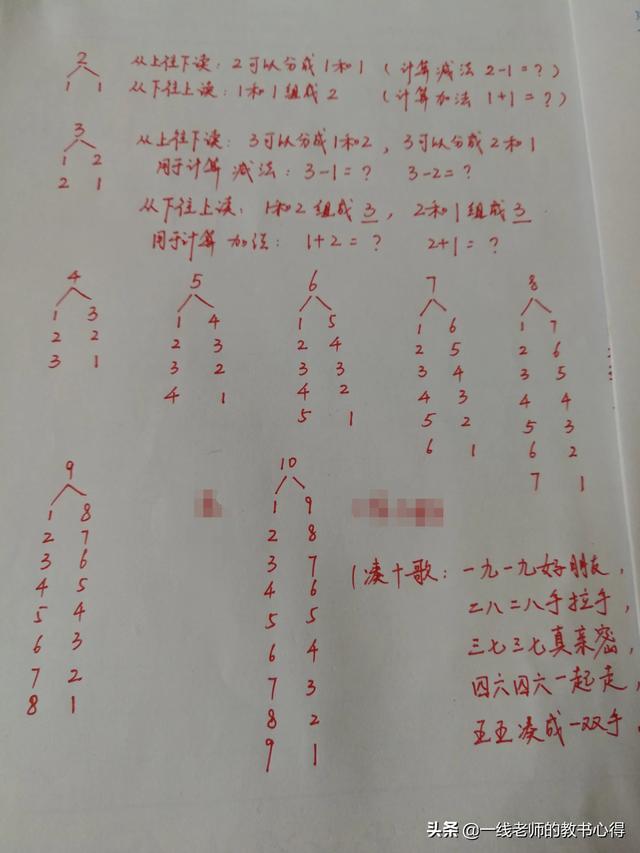 2
从上往下读：2可以分成1和1（计算减法2-1=？）
1 1
从下往上读：1和1组成2（计算加法1+1=？）
3
从上往下读：3可以分成1和2，3可以分成2和1
1 2
用于计算减法：3-1=？ 3-2=？
2 1
从下往上读：1和2组成3，2和1组成3
用于计算加法：1+2=？ 2+1=？
4
1 3
2 2
3 1
5
1 4
2 3
3 2
4 1
6
1 5
2 4
3 3
4 2
5 1
7
1 6
2 5
3 4
4 3
5 2
6 1
8
1 7
2 6
3 5
4 4
5 3
6 2
7 1
9
1 8
2 7
3 6
4 5
5 4
6 3
7 2
8 1
10
1 9
2 8
3 7
4 6
5 5
6 4
7 3
8 2
9 1
凑十歌：一九一九好朋友，
二八二八手拉手，
三七三七真亲密，
四六四六一起走，
五五凑成一双手。
头条 @一线老师的教书心得